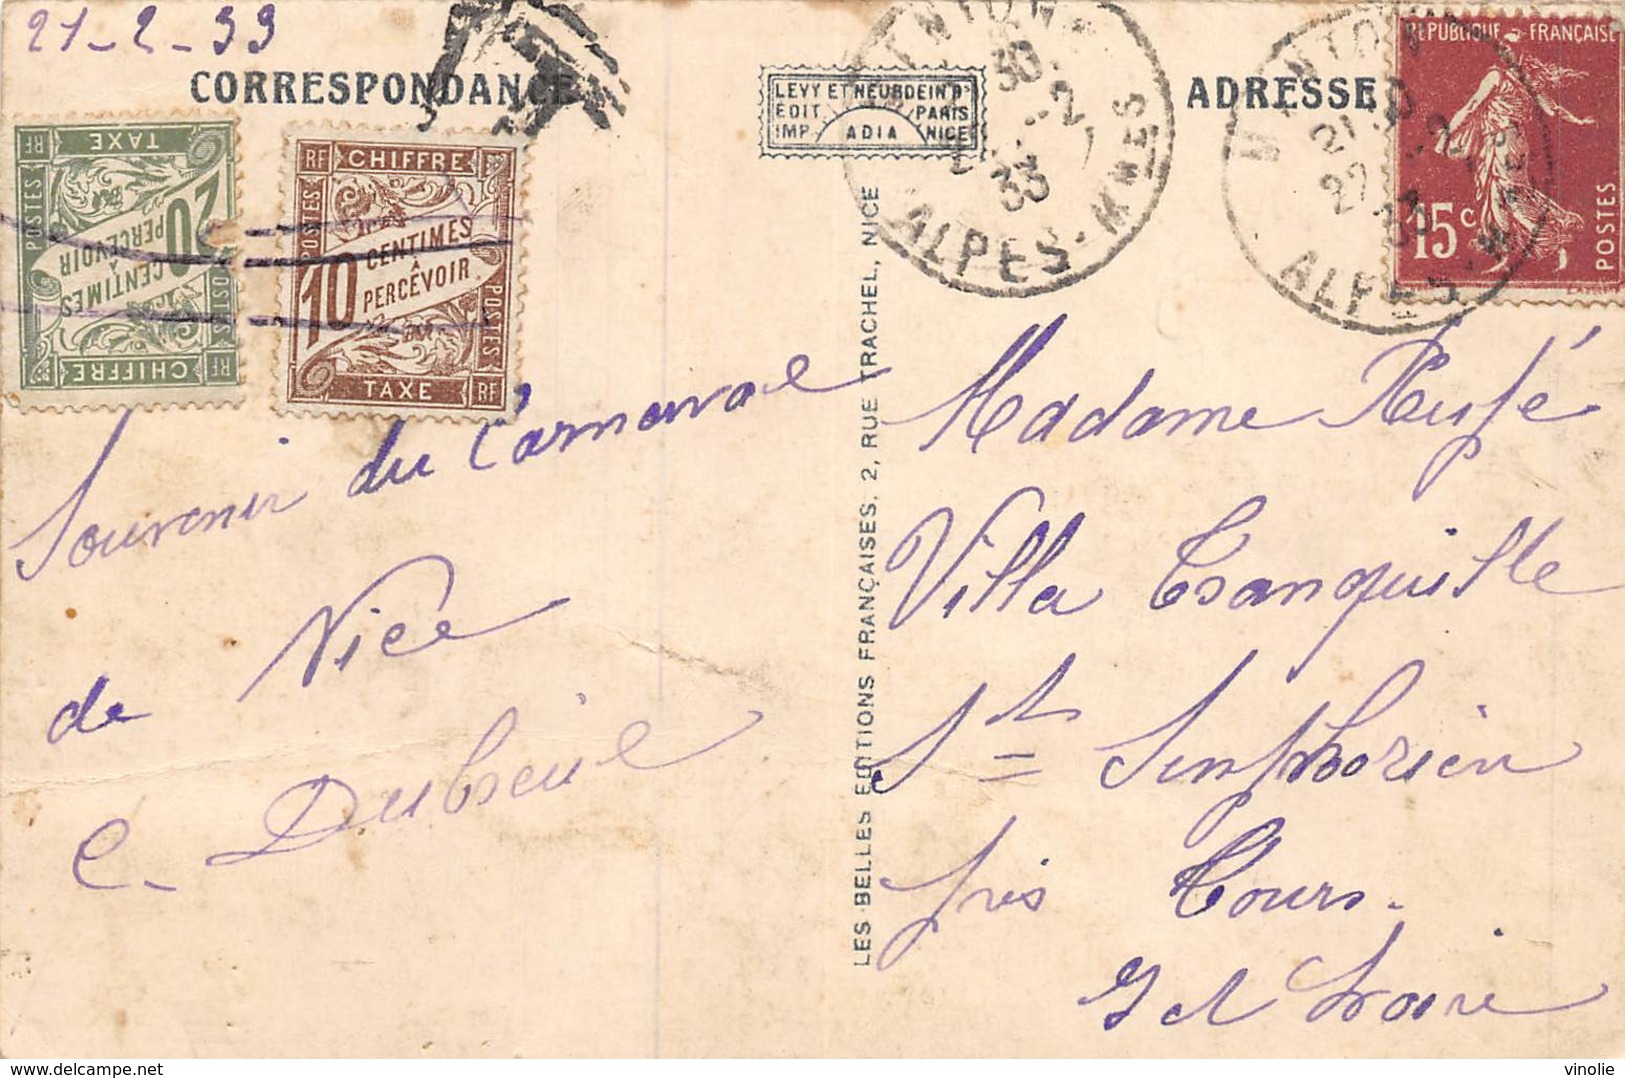 21-2-33
CORRESPONDANCE
LEVY ET NEURDEIN Rs
EDIT. PARIS
IMP. ADIA NICE
ADRESSE
RF CHIFFRE RF
POSTES
10 CENTIMES
À
PERCEVOIR
POSTES
TAXE RF
RF CHIFFRE RF
POSTES
20 CENTIMES
À
PERCEVOIR
POSTES
TAXE RF
MENTON
30
-2
33
ALPES-MMES
MENTON
21 30
22 -2
33
ALPES-M
REPUBLIQUE FRANÇAISE
15c
POSTES
Souvenir du Carnaval
de Nice
C. Dubreuil
LES BELLES EDITIONS FRANÇAISES. 2, RUE TRACHEL, NICE
Madame
Villa Tranquille
St Simphorien
près Tours.
I et Loire
vinolie